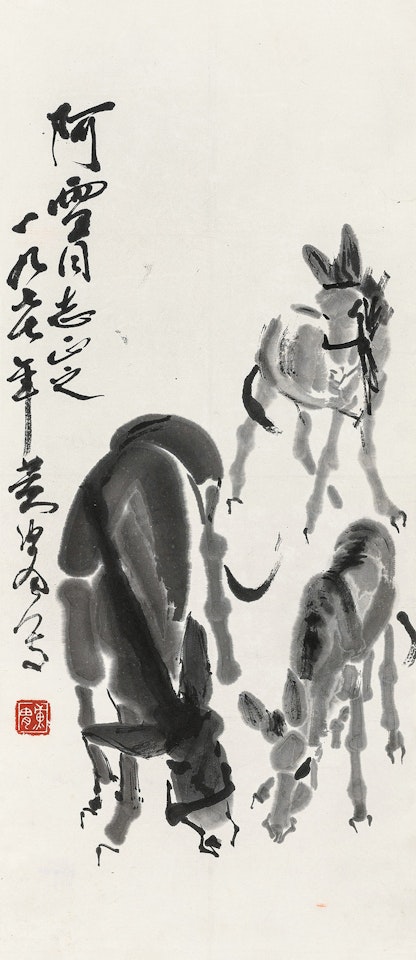 阿雪同志正之
一九七年黄胄写
黄胄